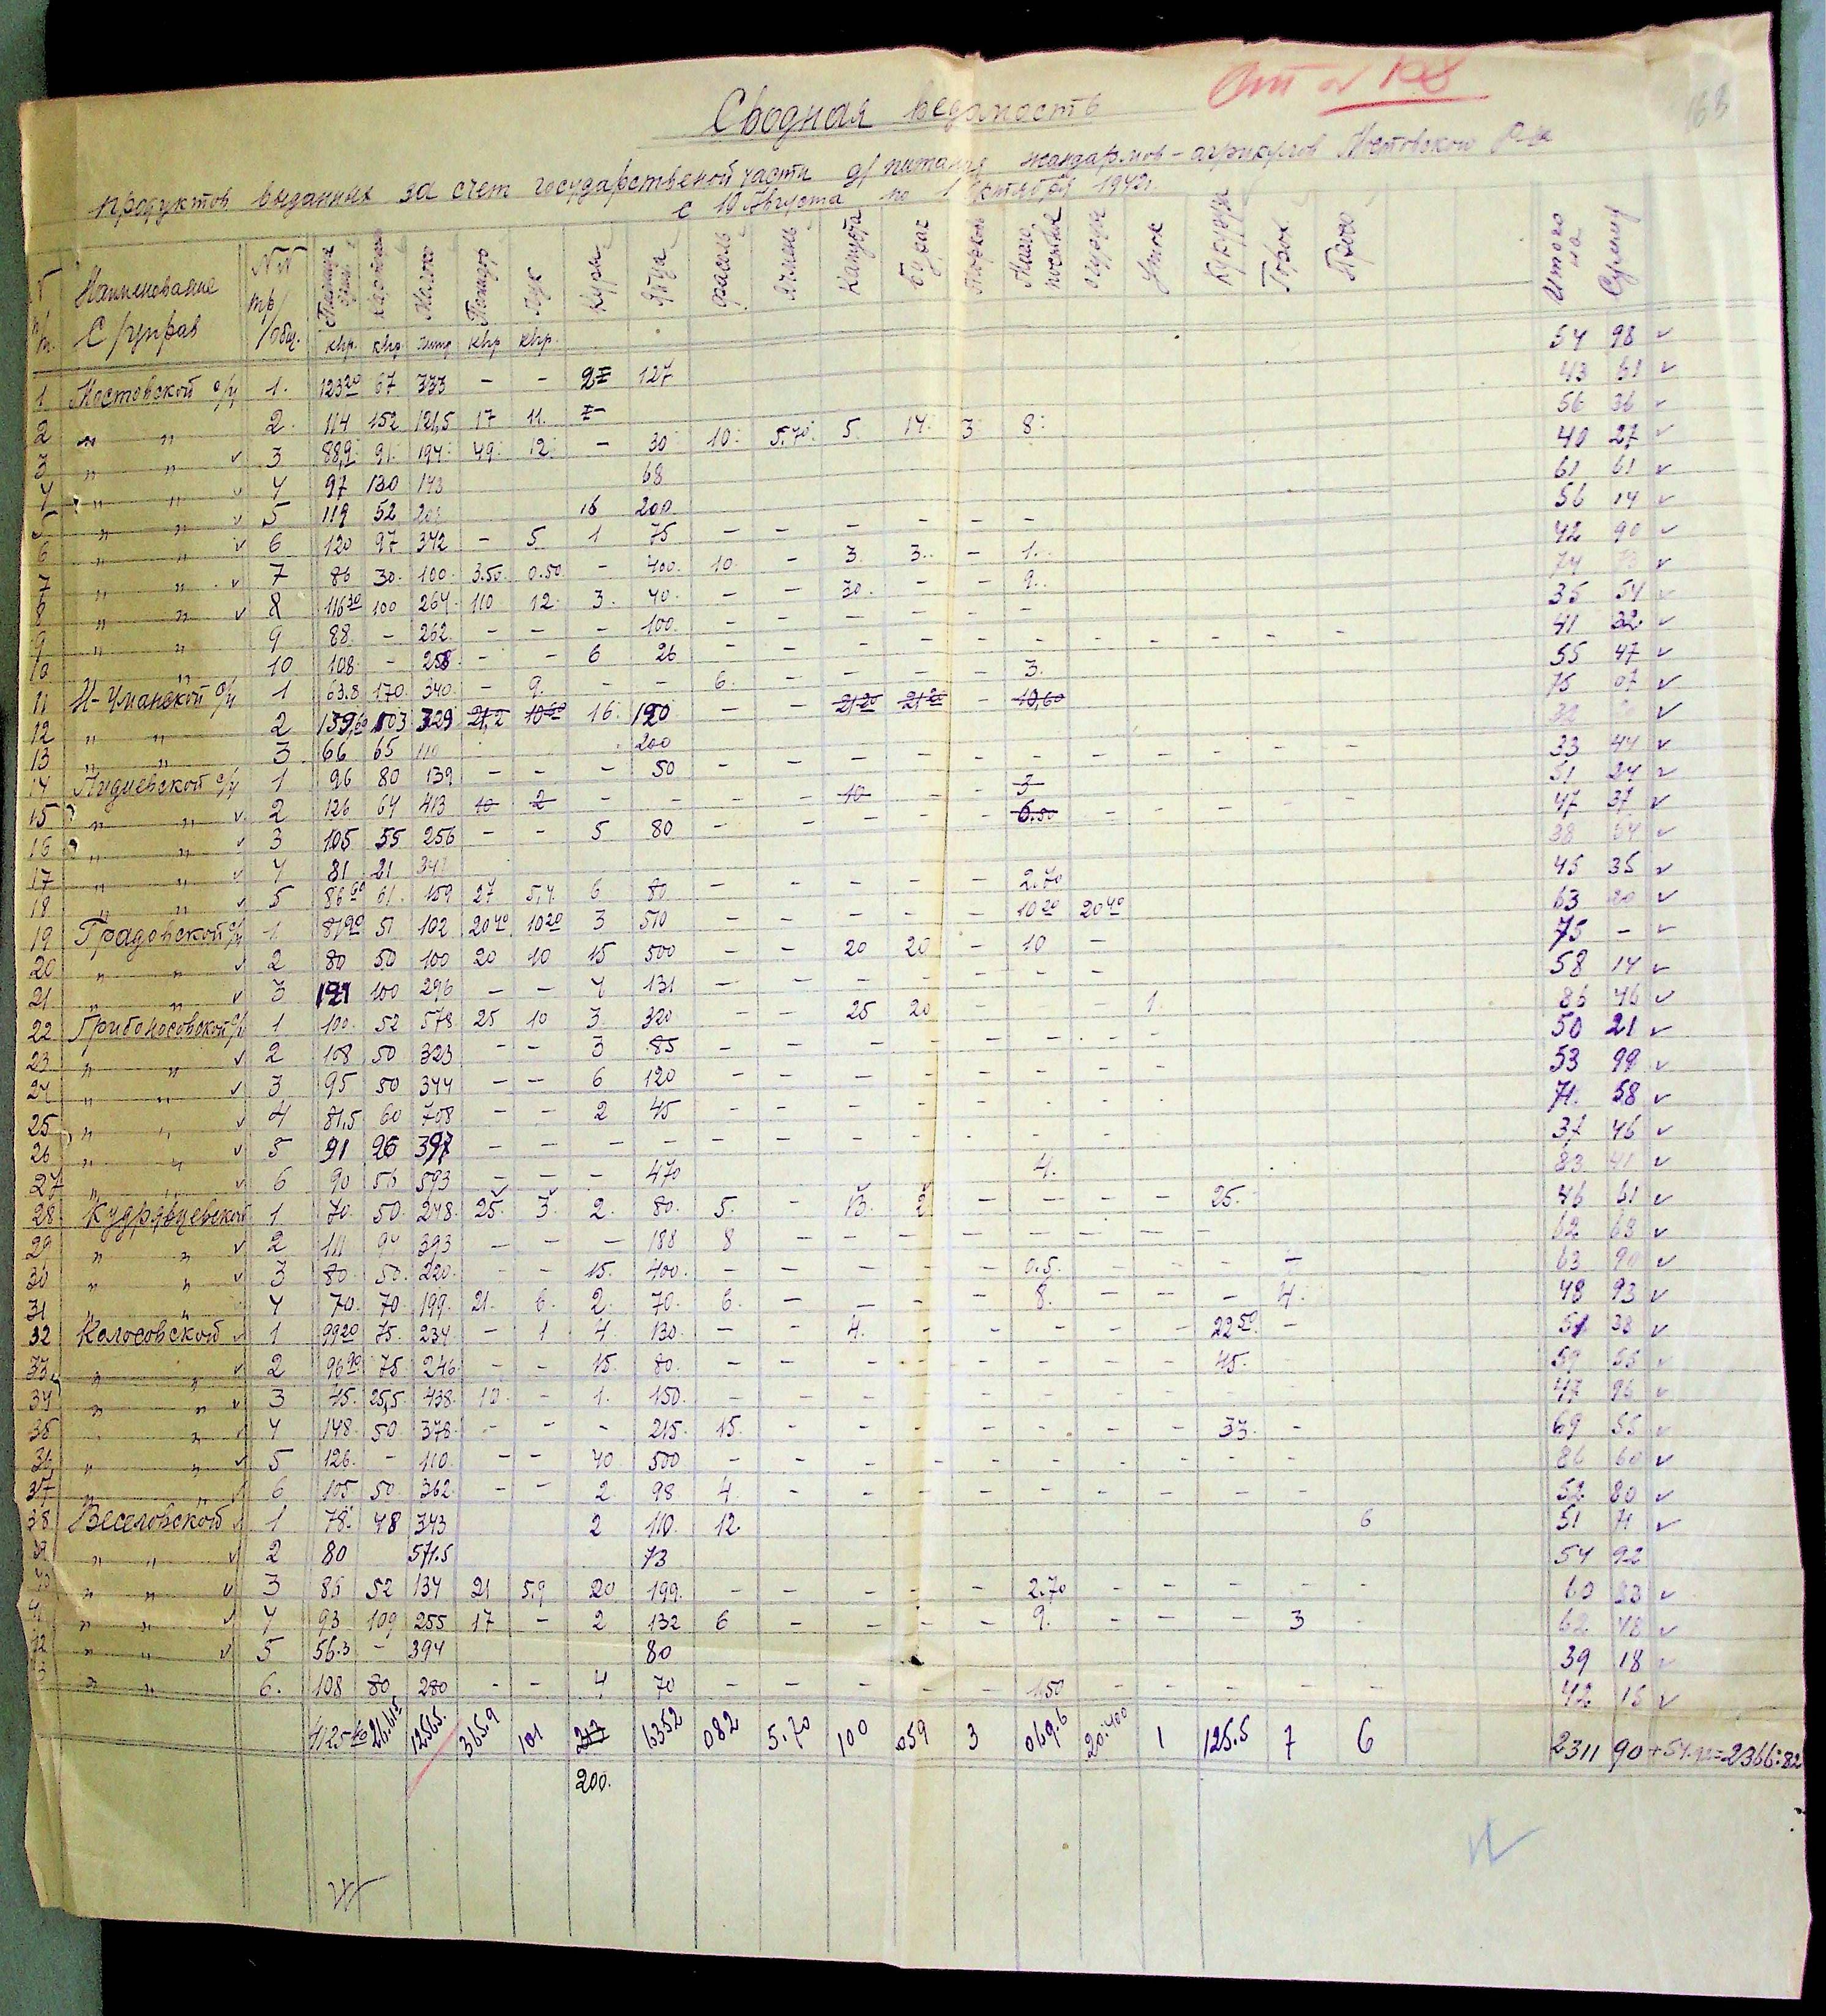 163
Сводная ведомость
продуктов выданных за счет государственой части д/ питания жандармов - агрикулов Мостовского р-на
с 19 Августа по 1 октября 1942г.
Наименование С/управ NN тр/общ. Пшеница Картошка Молоко Помидор Лук Куры Яйца фасоль Ячмень Капуста Буряк Морковь Масло огурцы Уток Кукуруза Горох Просо Итого на Сумму
кгр. кгр. литр кгр кгр.
1 Мостовской с/у 1. 123 20 67 333 - - 127 54 98
2 " " 2. 114 152 121,5 17 11. 43 61
3 " " 3 88,9 91. 194 49. 12. - 30 10. 5.70. 5. 14. 3 8. 56 36
4 " " 4 97 130 143 68 40 27
5 " " 5 119 52 16 200. 61 61
6 " " 6 120 97 342 - 5 1 75 - - - - - - 56 14
7 " " 7 86 30. 100. 3.50. 0.50. - 400. 10. - 3. 3. - 1. 42 90
8 " " 8 116 30 100 264. 110 12. 3. 40. - - 30. - - 9.
9 " " 9 88. - 262. - - - 100. - - - - - - 35 54
10 " 10. 108. - 258. - - 6 26 - - - - - - - - - - - 41 32
11 Н-Уманской с/у 1 63.8 170. 340. - 9. - - 6. - - - - 3. 55 47
12 " " 2 139,60 103 329 21,2 10 60 16. 190 - - 21 20 21 20 - 10,60 75 07
13 " " 3. 66 65 110 200
14 Лидиевской с/у 1 96 80 139 - - - 50 - - - - - - - - - - - 33 44
15 " " 2 126 64 413 10 2 - - - - 10 - - 3 51 24
16 " " 3 105 55 256 - - 5 80 - - - - - 6.50 - - - - - 47 37
17 " " 4 81 21 341
18 " " 5 86 61. 159 27 5,4. 6 80 - - - - - 2.70 45 35
19 Градовской с/у 1 51 102 20 40 10 20 3 510 - - - - - 10 20 20 40 63
20 " " 2 80 50 100 20 10 15 500 - - 20 20 - 10 - 75 -
21 " " 3 121 100 296 - - 4 131 - - - - - - - 58 14
22 Грибоносовской с/у 1 100. 52 578 25 10 3. 320 - - 25 20 - - 1. 86 46
23 " " 2 108 50 323 - - 3 85 - - - - - - - - 50 21
24 " " 3 95 50 344 - - 6 120 - - - - - - - - 53 99
25 " " 4 81,5 60 708 - - 2 45 - - - - - - - - 71. 58
26 " " 5 91 26 397 - - - - - - - - - - 37 46
27 " " 6 90 56 593 - - - 470 4. 83 41
28 Кудрявцевской 1 70. 50 248. 25. 3. 2. 80. 5. - 13. 2 - - - - 25. 46 61
29 " " 2 111 94 393 - - - 188 8 - - - - - - - - 62 63
30 " " 3 80. 50. 220. - - 15. 400. - - - - - 0.5. - - - - 63 90
31 " " 4 70. 70 199. 21. 6. 2. 70. 6. - - - - 8. - - - 4. 48 93
32 Колосовской 1 99 20 75. 234 - 1 4 130 - - 4. - - - - - 22 50. - 51 38
33 " " 2 96 90 75 246 - - 15. 80. - - - - - - - - 45. 59 55
34 " " 3 45. 25,5. 438. 10. - 1. 150. - - - - - - - - - 47 96
35 " " 4 148. 50 378. - - - 215. 15. - - - - - - - 33. - 69 55
36 " " 5 126. - 110. - - 40 500 - - - - - - - - - - 86 60
37 " " 6 105 50 362. - - 2 98 4. - - - - - - - - - 52 80
38 Веселовской 1 78. 48 343 2 110. 12. 6 51 71
39 " " 2 80 571.5 73 54 92
40 " " 3 86 52 134 21 5,9 20 199. - - - - - 2.70 - - - - - 60 83
41 " " 4 93 109 255 17 - 2 132 6 - - - - 9. - - - 3 - 62 48
42 " " 5 56.3 - 394 80 39 18
43 " " 6. 108 80 280 - - 4 70 - - - - - 1.50 - - - - - 42 15
365.9 101 217 6352 082 5.70 100 059 3 069.6 20.400 1 125.5 7 6 2311 90 + 54.92 = 2366:82
200.